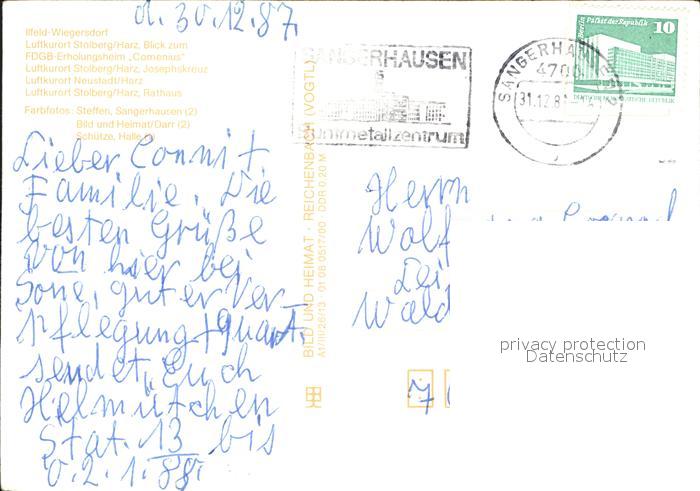 d. 30.12.87.
Ilfeld-Wiegersdorf
Luftkurort Stolberg/Harz, Blick zum
FDGB-Erholungsheim „Comenius"
Luftkurort Stolberg/Harz, Josephskreuz
Luftkurort Neustadt/Harz
Luftkurort Stolberg/Harz, Rathaus
Farbfotos: Steffen, Sangerhausen (2)
Bild und Heimat/Darr (2)
Schütze, Halle (2)
Lieber Conni t
Familie. Die
besten Grüße
von hier bei
Sone, guter Ver-
pflegung + Quart.
sendet Euch
Helmutchen
Stat. 13 bis
0.2.1.88.
BILD UND HEIMAT · REICHENBACH (VOGTL)
A1/III/26/13 01 08 0517/00 DDR 0,20 M
SANGERHAUSEN
Buntmetallzentrum
SANGERHAUSEN
4700
31.12.87
Berlin Palast der Republik
10
DEUTSCHE DEMOKRATISCHE REPUBLIK
Herrn
Wolf
Lei
Wald
privacy protection
Datenschutz